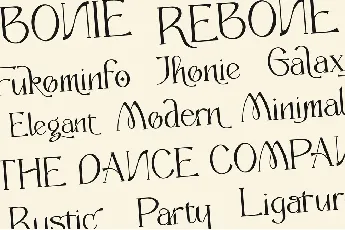 BONIE REBONE
Fukominfo Jhonie Galax
Elegant Modern Minimal
THE DANCE COMPAN
Rustic Party Ligatur